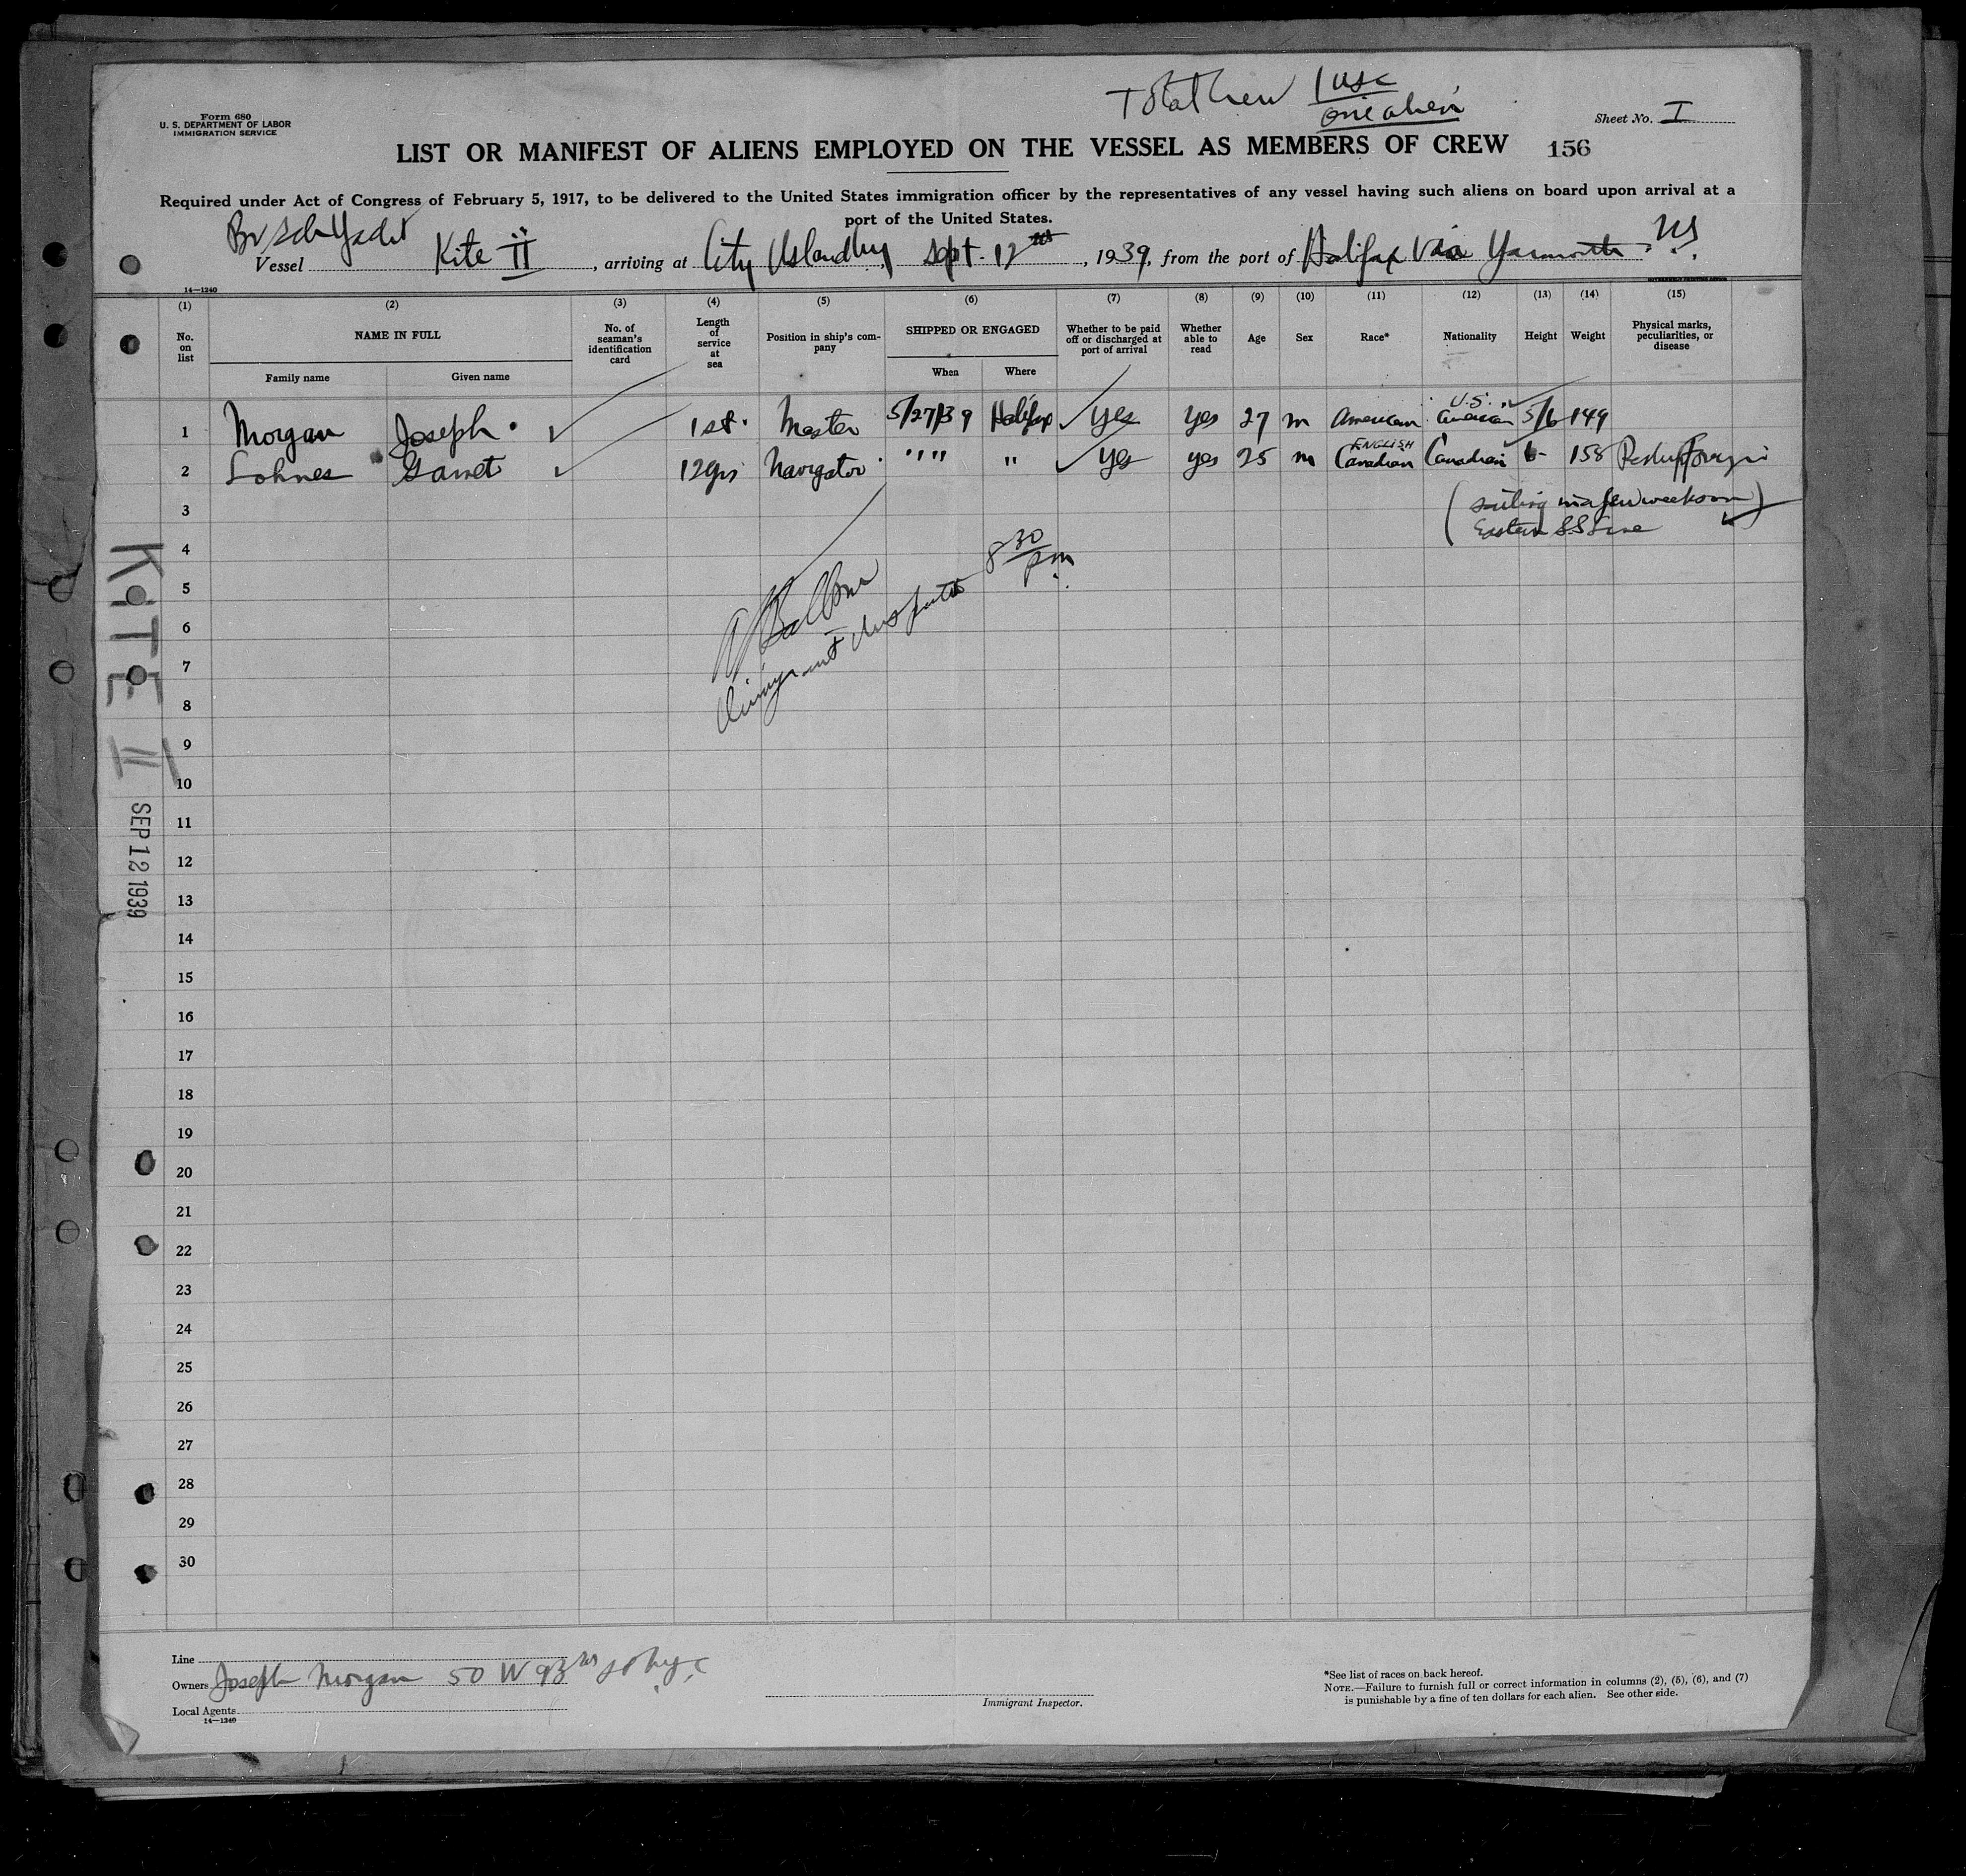 Total Crew 1 USC
one alien
Form 680
U. S. DEPARTMENT OF LABOR
IMMIGRATION SERVICE
Sheet No. I
LIST OR MANIFEST OF ALIENS EMPLOYED ON THE VESSEL AS MEMBERS OF CREW 156
Required under Act of Congress of February 5, 1917, to be delivered to the United States immigration officer by the representatives of any vessel having such aliens on board upon arrival at a
port of the United States.
Br Sch Yacht
Vessel Kite II, arriving at City Island NY, Sept. 12, 1939, from the port of Halifax via Yarmouth. NS.
14—1240
(1) (2) (3) (4) (5) (6) (7) (8) (9) (10) (11) (12) (13) (14) (15)
No. on list
NAME IN FULL
Family name
Given name
No. of seaman's identification card
Length of service at sea
Position in ship's company
SHIPPED OR ENGAGED
When
Where
Whether to be paid off or discharged at port of arrival
Whether able to read
Age
Sex
Race*
Nationality
Height
Weight
Physical marks, peculiarities, or disease
U.S.
1 Morgan Joseph 1st. Master 5/27/39 Halifax Yes Yes 27 m American American 5/6 149
ENGLISH
2 Lohnes Garret 12 yrs Navigator " " " " " Yes yes 25 m Canadian Canadian 6- 158 Reship foreign
3
(sailing in a few weeks on
Eastern S.S. Line)
4
8 30 pm
5
6
Immigrant Inspector
7
8
9
10
11
12
13
14
15
16
17
18
19
20
21
22
23
24
25
26
27
28
29
30
KITE II
SEP 12 1939
Line
Owners Joseph Morgan 50 W 93rd St NYC
Local Agents
14—1240
Immigrant Inspector.
*See list of races on back hereof.
NOTE.—Failure to furnish full or correct information in columns (2), (5), (6), and (7)
is punishable by a fine of ten dollars for each alien. See other side.